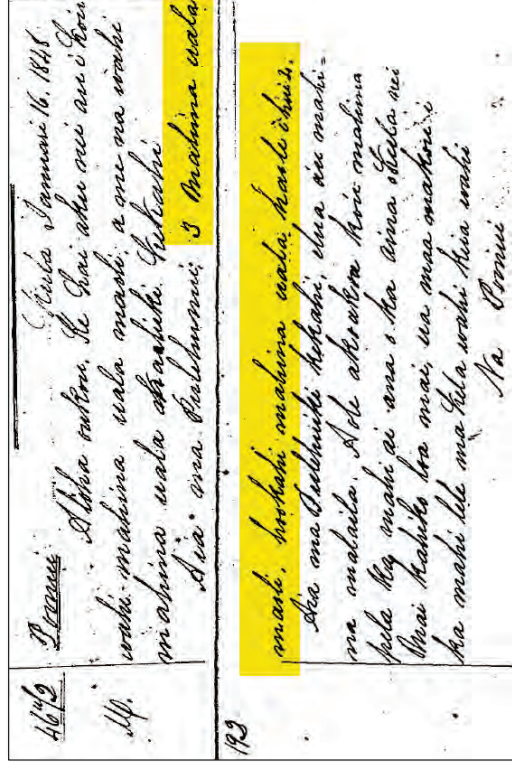 Poonui Kula Ianuari 16. 1848
Aloha oukou. Ke hai aku nei au i kou
wahi mahina uala maoli a me na wahi
mahina uala Kekahi
Aia ma Pulehunui, 3 mahina uala
192
maoli, hookahi mahina uala
Aia ma Pulehuiki kekahi, elua au mahi-
na malaila. Aole akoakoa kou mahina
pela ka mahi ai ana o ka aina o Kula nei
Mai kahiko loa mai, ua maa makou i
ka mahi lele ma kela wahi keia wahi
Na Poonui